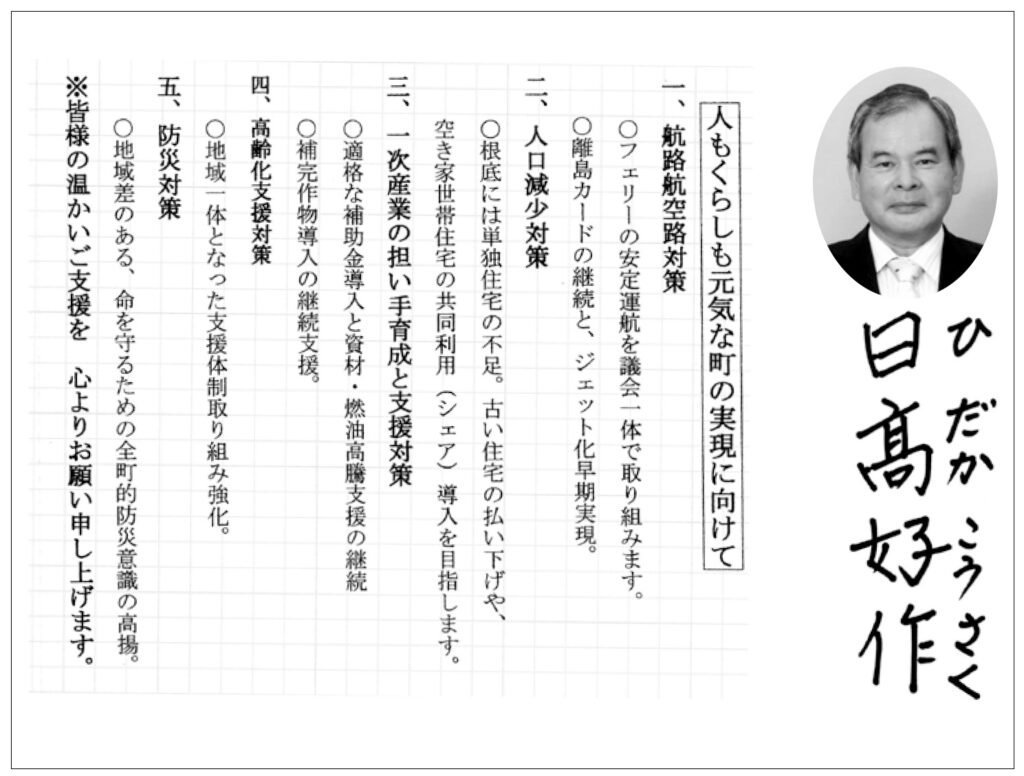 ひだか こうさく
日髙好作
人もくらしも元気な町の実現に向けて
一、航路航空路対策
〇フェリーの安定運航を議会一体で取り組みます。
〇離島カードの継続と、ジェット化早期実現。
二、人口減少対策
〇根底には単独住宅の不足。古い住宅の払い下げや、
空き家世帯住宅の共同利用（シェア）導入を目指します。
三、一次産業の担い手育成と支援対策
〇適格な補助金導入と資材・燃油高騰支援の継続
〇補完作物導入の継続支援。
四、高齢化支援対策
〇地域一体となった支援体制取り組み強化。
五、防災対策
〇地域差のある、命を守るための全町的防災意識の高揚。
※皆様の温かいご支援を　心よりお願い申し上げます。